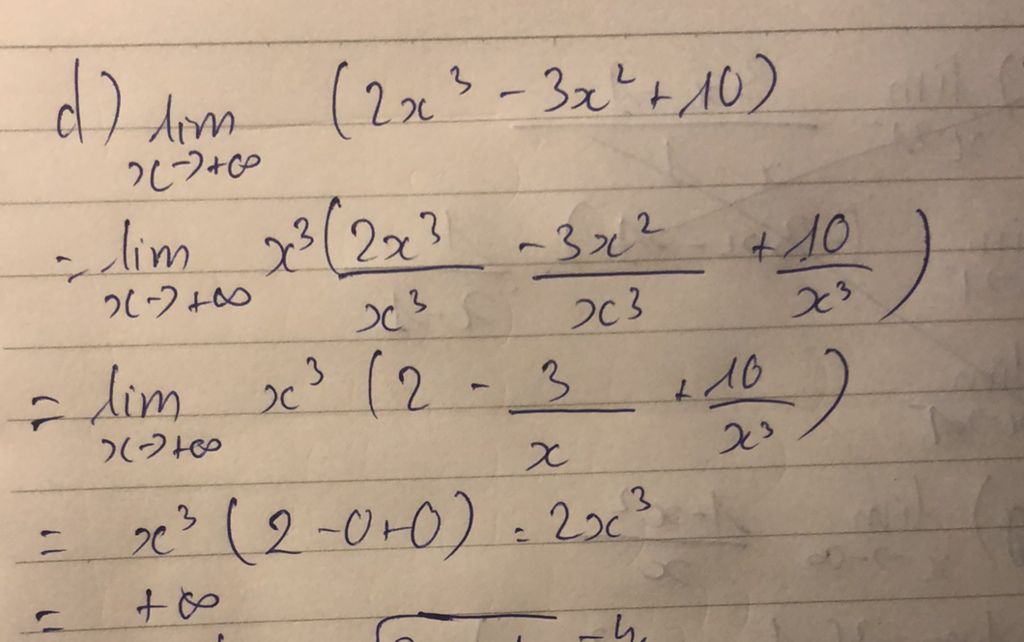 d) lim x->+∞ (2x³ - 3x² + 10)
= lim x->+∞ x³ (2x³/x³ -3x²/x³ +10/x³)
= lim x->+∞ x³ (2 - 3/x + 10/x³)
= x³ (2-0+0) = 2x³
= +∞